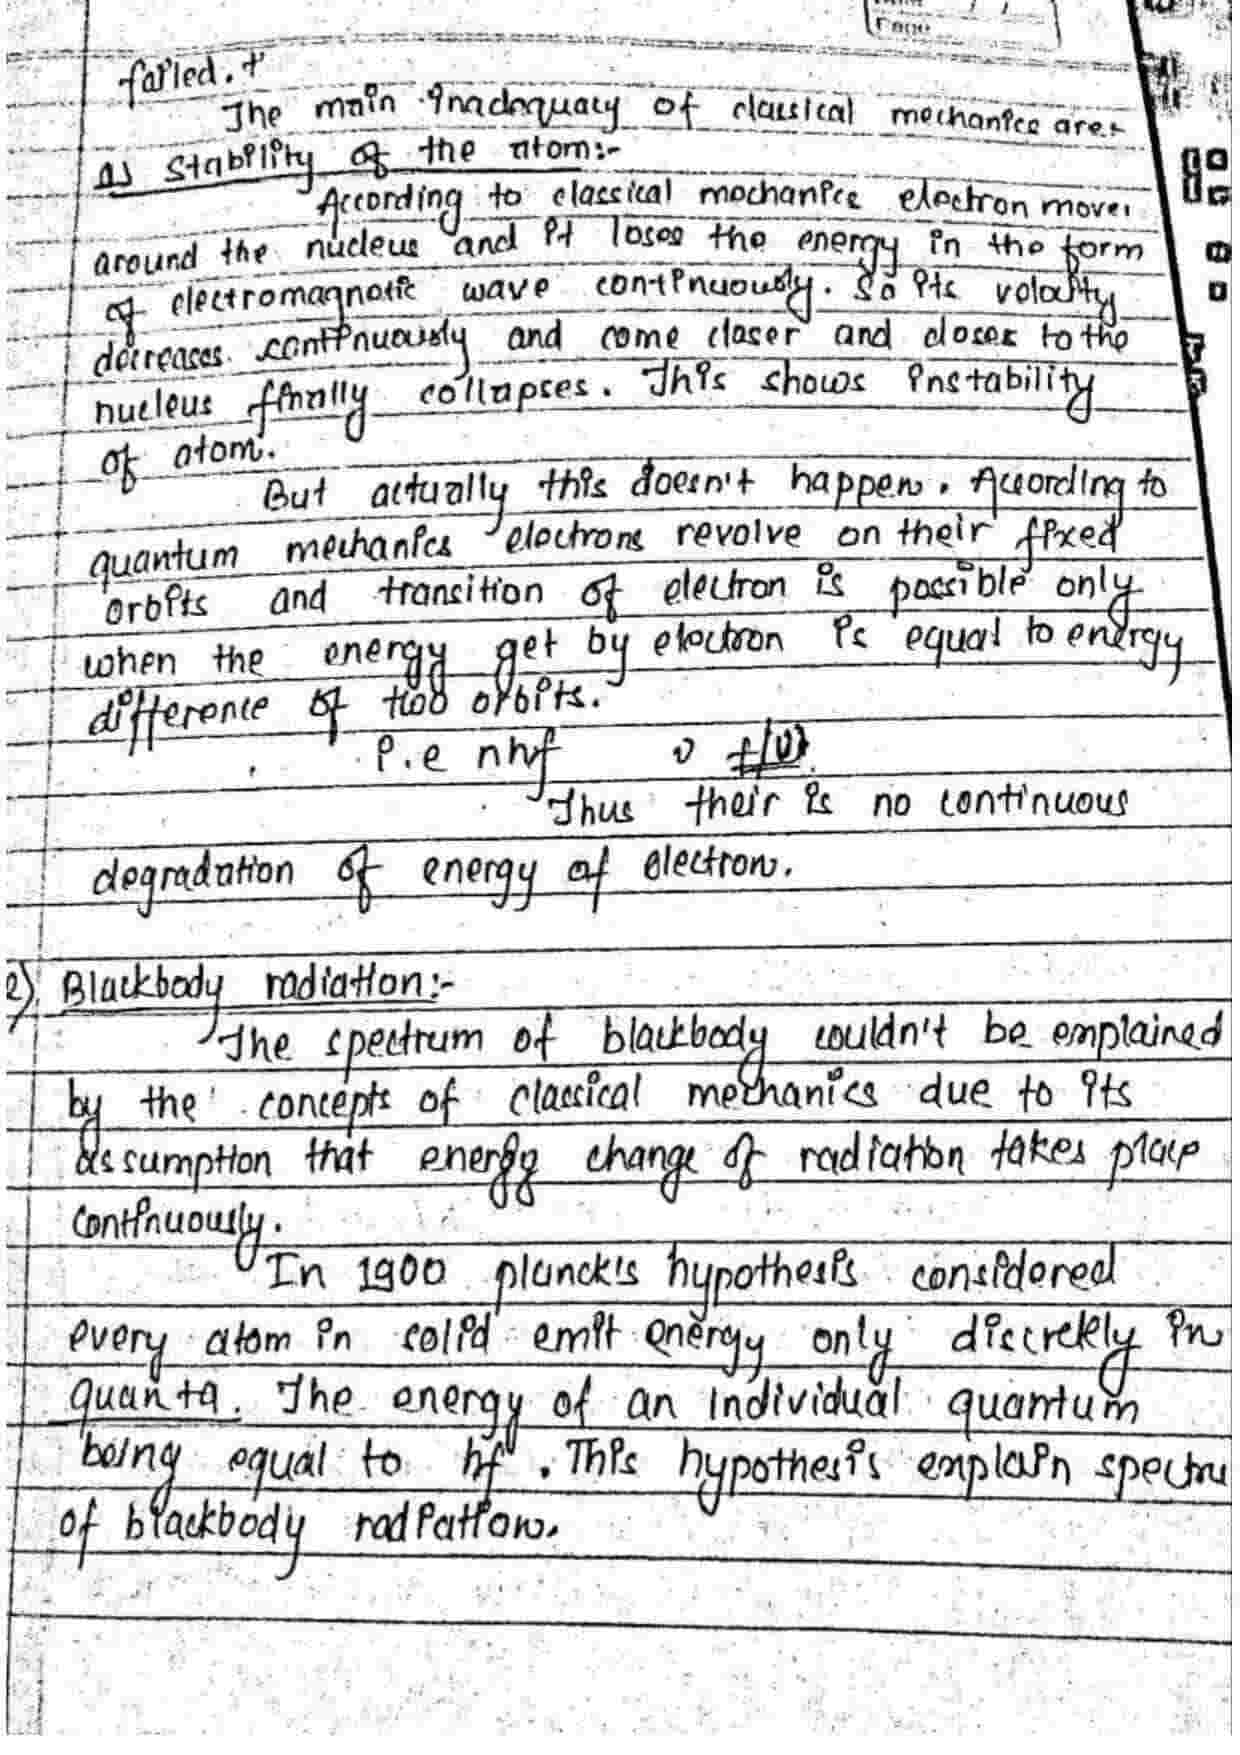 Page
failed.
The main inadequacy of classical mechanics are:-
Stability of the atom:-
According to classical mechanics electron moves
around the nucleus and it loses the energy in the form
of electromagnetic wave continuously. So its velocity
decreases continuously and come closer and closer to the
nucleus finally collapses. This shows instability
of atom.
But actually this doesn't happen. According to
quantum mechanics electrons revolve on their fixed
orbits and transition of electron is possible only
when the energy get by electron is equal to energy
difference of two orbits.
i.e nhf
Thus their is no continuous
degradation of energy of electron.
2) Blackbody radiation:-
The spectrum of blackbody couldn't be emplained
by the concepts of classical mechanics due to its
assumption that energy change of radiation takes place
continuously.
In 1900 planck's hypothesis considered
every atom in solid emit energy only discretely in
quanta. The energy of an individual quantum
being equal to hf. This hypothesis emplain spectru
of blackbody radiation.